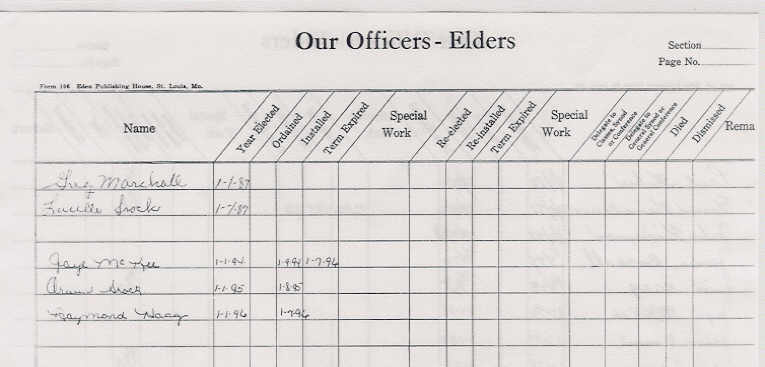 Our Officers - Elders
Section
Page No.
Form 106 Eden Publishing House, St. Louis, Mo.
Name Year Elected Ordained Installed Term Expired Special Work Re-elected Re-installed Term Expired Special Work Delegate to Classes, Synod or Conference Delegate to General Synod or General Conference Died Dismissed Rema
Greg Marschall 1-1-87
Lucille Srock 1-1-87
Faye McKee 1-1-94 1-9-94 1-7-96
Srock 1-1-95 1-8-95
Raymond Haag 1-1-96 1-7-96